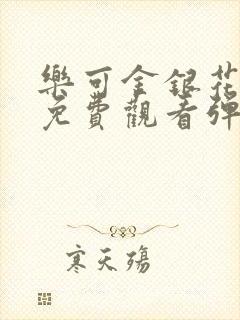 樂可金銀花
免費觀看彈
寒天殤